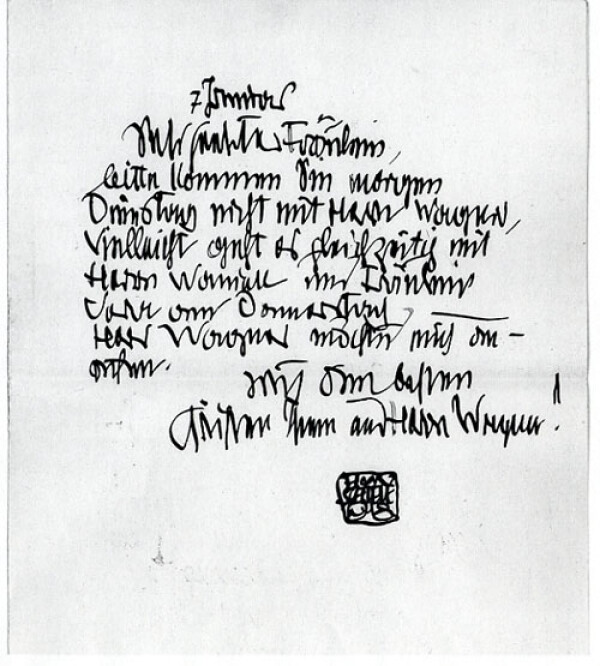 7 Januar
Sehr geehrtes Fräulein,
bitte kommen Sie morgen
Dienstag nicht mit Herrn Wagner,
Vielleicht geht es gleichzeitig mit
Herrn und Fräulein
am Donnerstag
Herr Wagner möchte mich an-
sehen.
mit den besten
Grüssen Ihnen und Herrn Wagner!